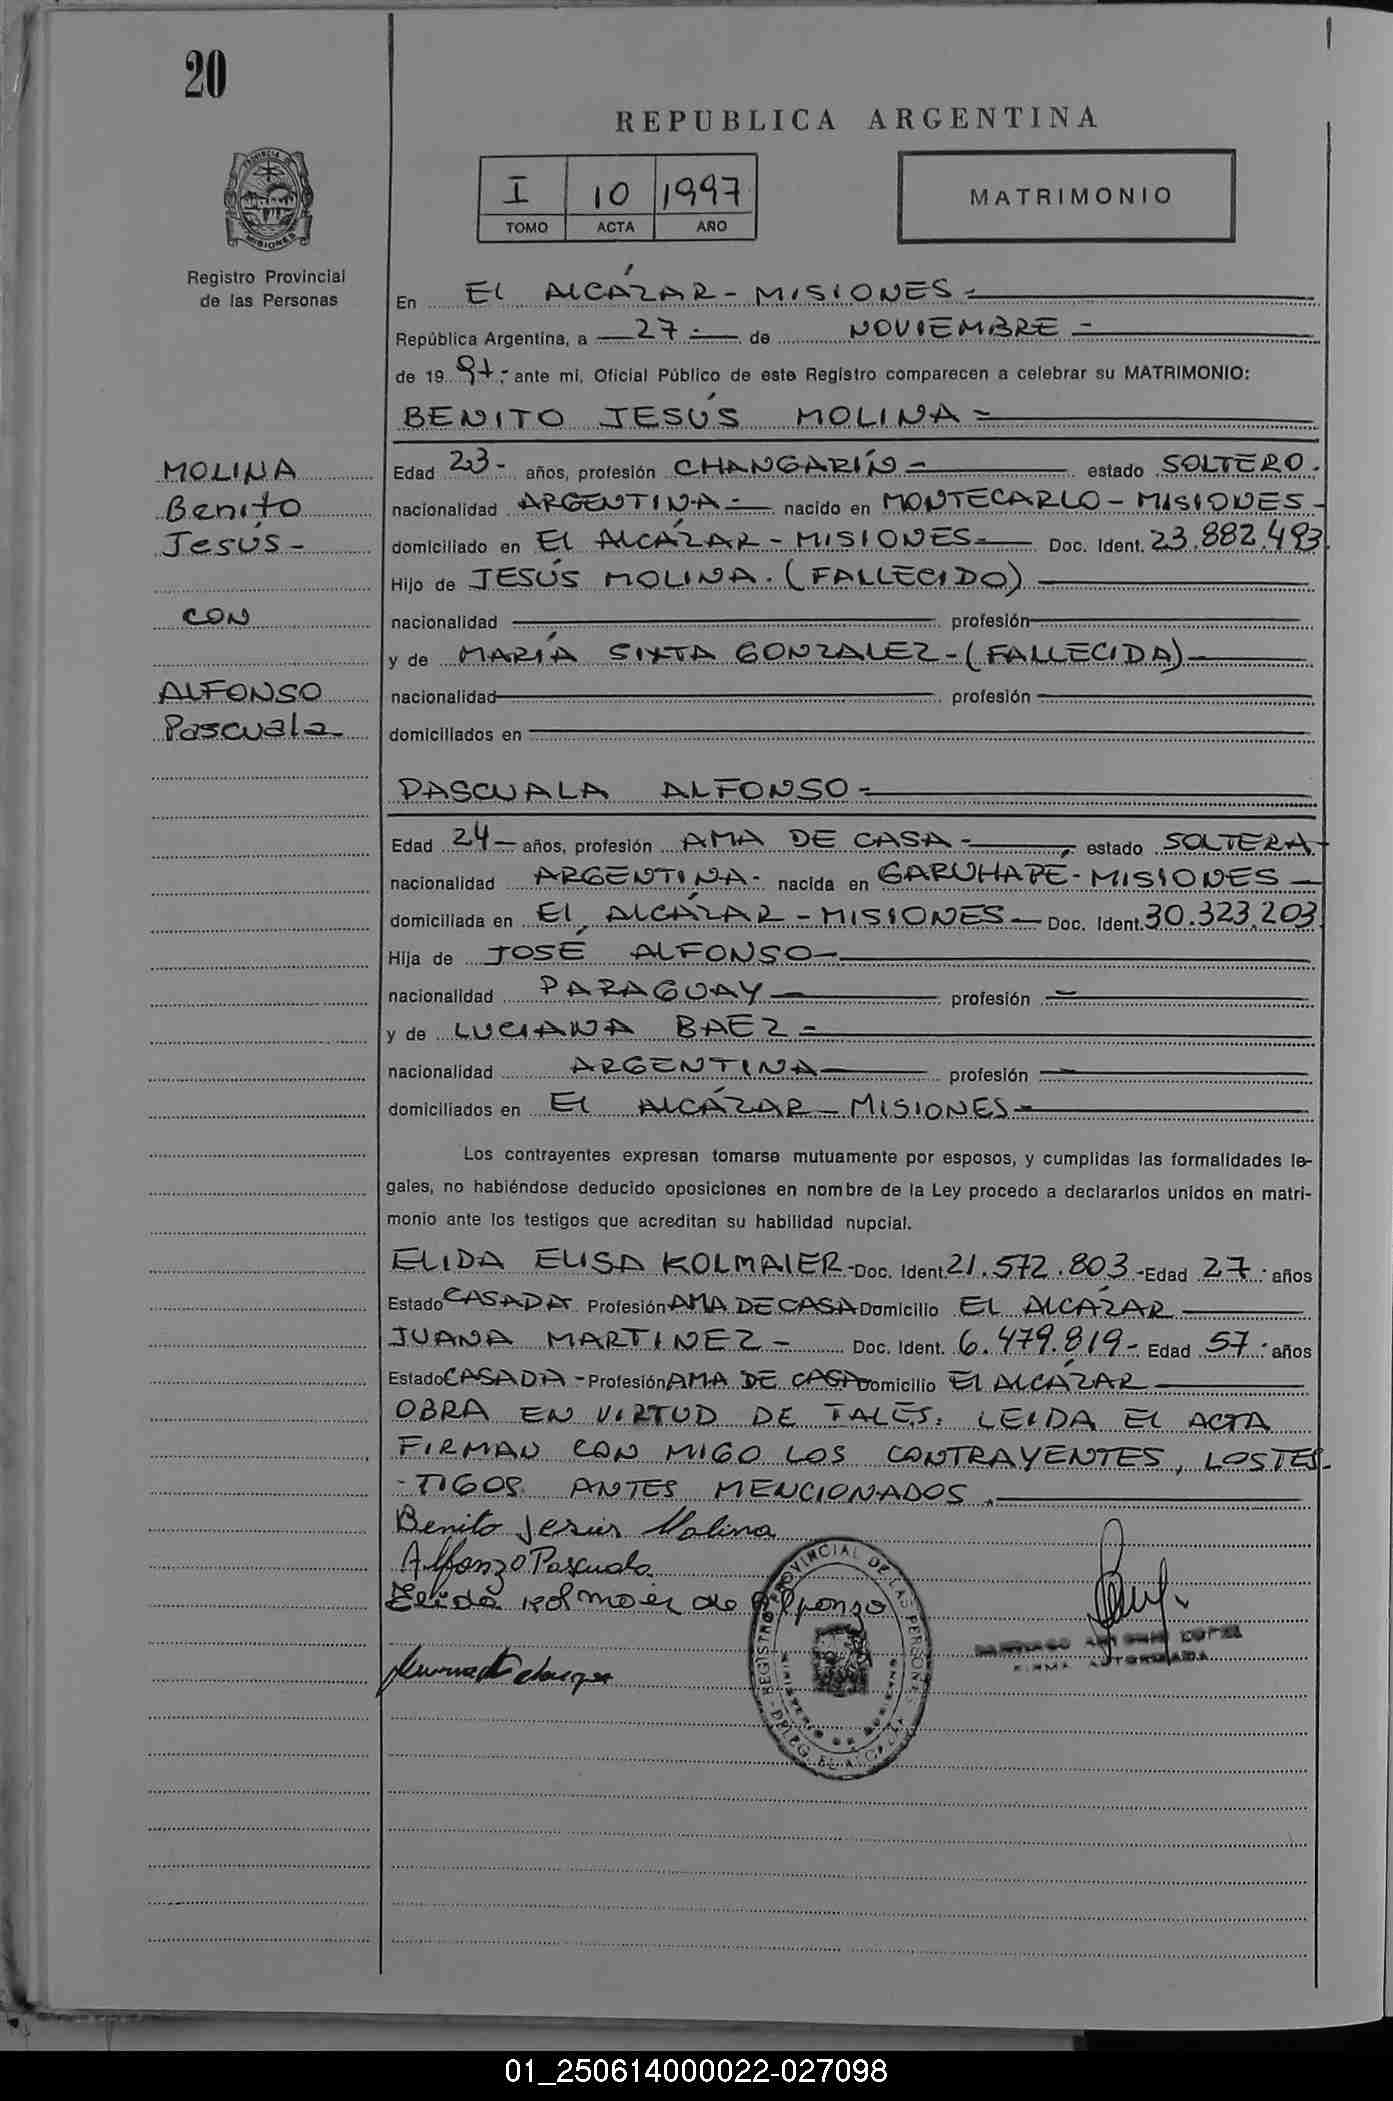 20
REPUBLICA ARGENTINA
I 10 1997
TOMO ACTA AÑO
MATRIMONIO
PROVINCIA DE
MISIONES
Registro Provincial
de las Personas
En El AlCÁZAR - MISIONES -
República Argentina, a 27 - de NOVIEMBRE -
de 19 97 - ante mi, Oficial Público de este Registro comparecen a celebrar su MATRIMONIO:
BENITO JESÚS MOLINA -
MOLINA
Benito
Jesús -
CON
ALFONSO
Pascuala
Edad 23 - años, profesión CHANGARÍN - estado SOLTERO.
nacionalidad ARGENTINA - nacido en MONTECARLO - MISIONES -
domiciliado en El AlCÁZAR - MISIONES - Doc. Ident. 23.882.493
Hijo de JESÚS MOLINA. (FALLECIDO)
nacionalidad profesión
y de MARÍA SIXTA GONZALEZ - (FALLECIDA)
nacionalidad profesión
domiciliados en
PASCUALA ALFONSO -
Edad 24 - años, profesión AMA DE CASA - estado SOLTERA -
nacionalidad ARGENTINA - nacida en GARUHAPÉ - MISIONES -
domiciliada en El AlCÁZAR - MISIONES - Doc. Ident. 30.323.203
Hija de JOSÉ ALFONSO -
nacionalidad PARAGUAY - profesión -
y de LUCIANA BAEZ -
nacionalidad ARGENTINA profesión -
domiciliados en El AlCÁZAR - MISIONES -
Los contrayentes expresan tomarse mutuamente por esposos, y cumplidas las formalidades le-
gales, no habiéndose deducido oposiciones en nombre de la Ley procedo a declararlos unidos en matri-
monio ante los testigos que acreditan su habilidad nupcial.
ELIDA ELISA KOLMAIER - Doc. Ident. 21.572.803 - Edad 27 - años
Estado CASADA Profesión AMA DE CASA Domicilio EL AlCÁZAR
JUANA MARTINEZ - Doc. Ident. 6.479.819 - Edad 57 - años
Estado CASADA - Profesión AMA DE CASA Domicilio El AlCÁZAR
OBRA EN VIRTUD DE TALES. LEIDA El ACTA
FIRMAN CON MIGO LOS CONTRAYENTES, LOS TES-
-TIGOS ANTES MENCIONADOS.
Benito Jesús Molina
Alfonzo Pascuala
Elida Kolmaier de Alfonzo
REGISTRO PROVINCIAL DE LAS PERSONAS
DELEG. EL ALCAZAR
MINISTERIO DE GOBIERNO
ANTONIO LOPEZ
FIRMA AUTORIZADA
01_250614000022-027098